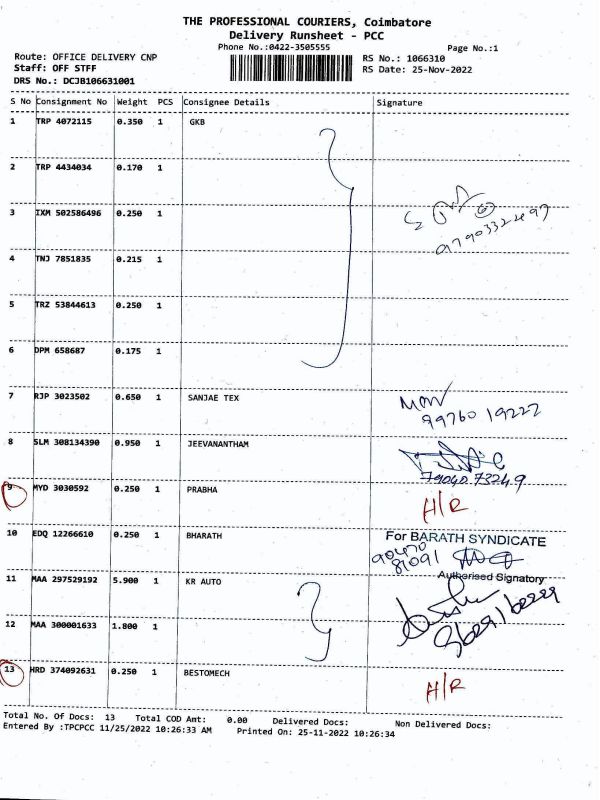 THE PROFESSIONAL COURIERS, Coimbatore
Delivery Runsheet - PCC
Phone No.:0422-3505555 Page No.:1
Route: OFFICE DELIVERY CNP RS No.: 1066310
Staff: OFF STFF RS Date: 25-Nov-2022
DRS No.: DCJB106631001
S No Consignment No Weight PCS Consignee Details Signature
1 TRP 4072115 0.350 1 GKB
2 TRP 4434034 0.170 1
3 IXM 502586496 0.250 1
9790332497
4 TNJ 7851835 0.215 1
5 TRZ 53844613 0.250 1
6 DPM 658687 0.175 1
7 RJP 3023502 0.650 1 SANJAE TEX
99760 19222
8 SLM 308134390 0.950 1 JEEVANANTHAM
79040 73249
9 MYD 3030592 0.250 1 PRABHA H/R
10 EDQ 12266610 0.250 1 BHARATH For BARATH SYNDICATE
90470
81091
Authorised Signatory
11 MAA 297529192 5.900 1 KR AUTO
12 MAA 300001633 1.800 1
13 HRD 374092631 0.250 1 BESTOMECH H/R
Total No. Of Docs: 13 Total COD Amt: 0.00 Delivered Docs: Non Delivered Docs:
Entered By :TPCPCC 11/25/2022 10:26:33 AM Printed On: 25-11-2022 10:26:34